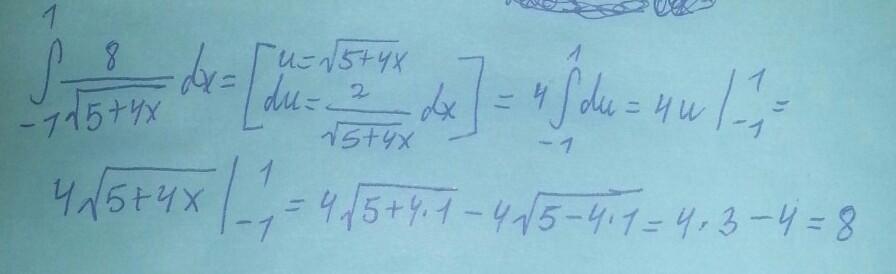 ∫_{-1}^{1} 8/√(5+4x) dx = [u=√(5+4x) du= 2/√(5+4x) dx] = 4∫_{-1}^{1} du = 4u |_{-1}^{1} =
4√(5+4x) |_{-1}^{1} = 4√(5+4·1) - 4√(5-4·1) = 4·3-4=8